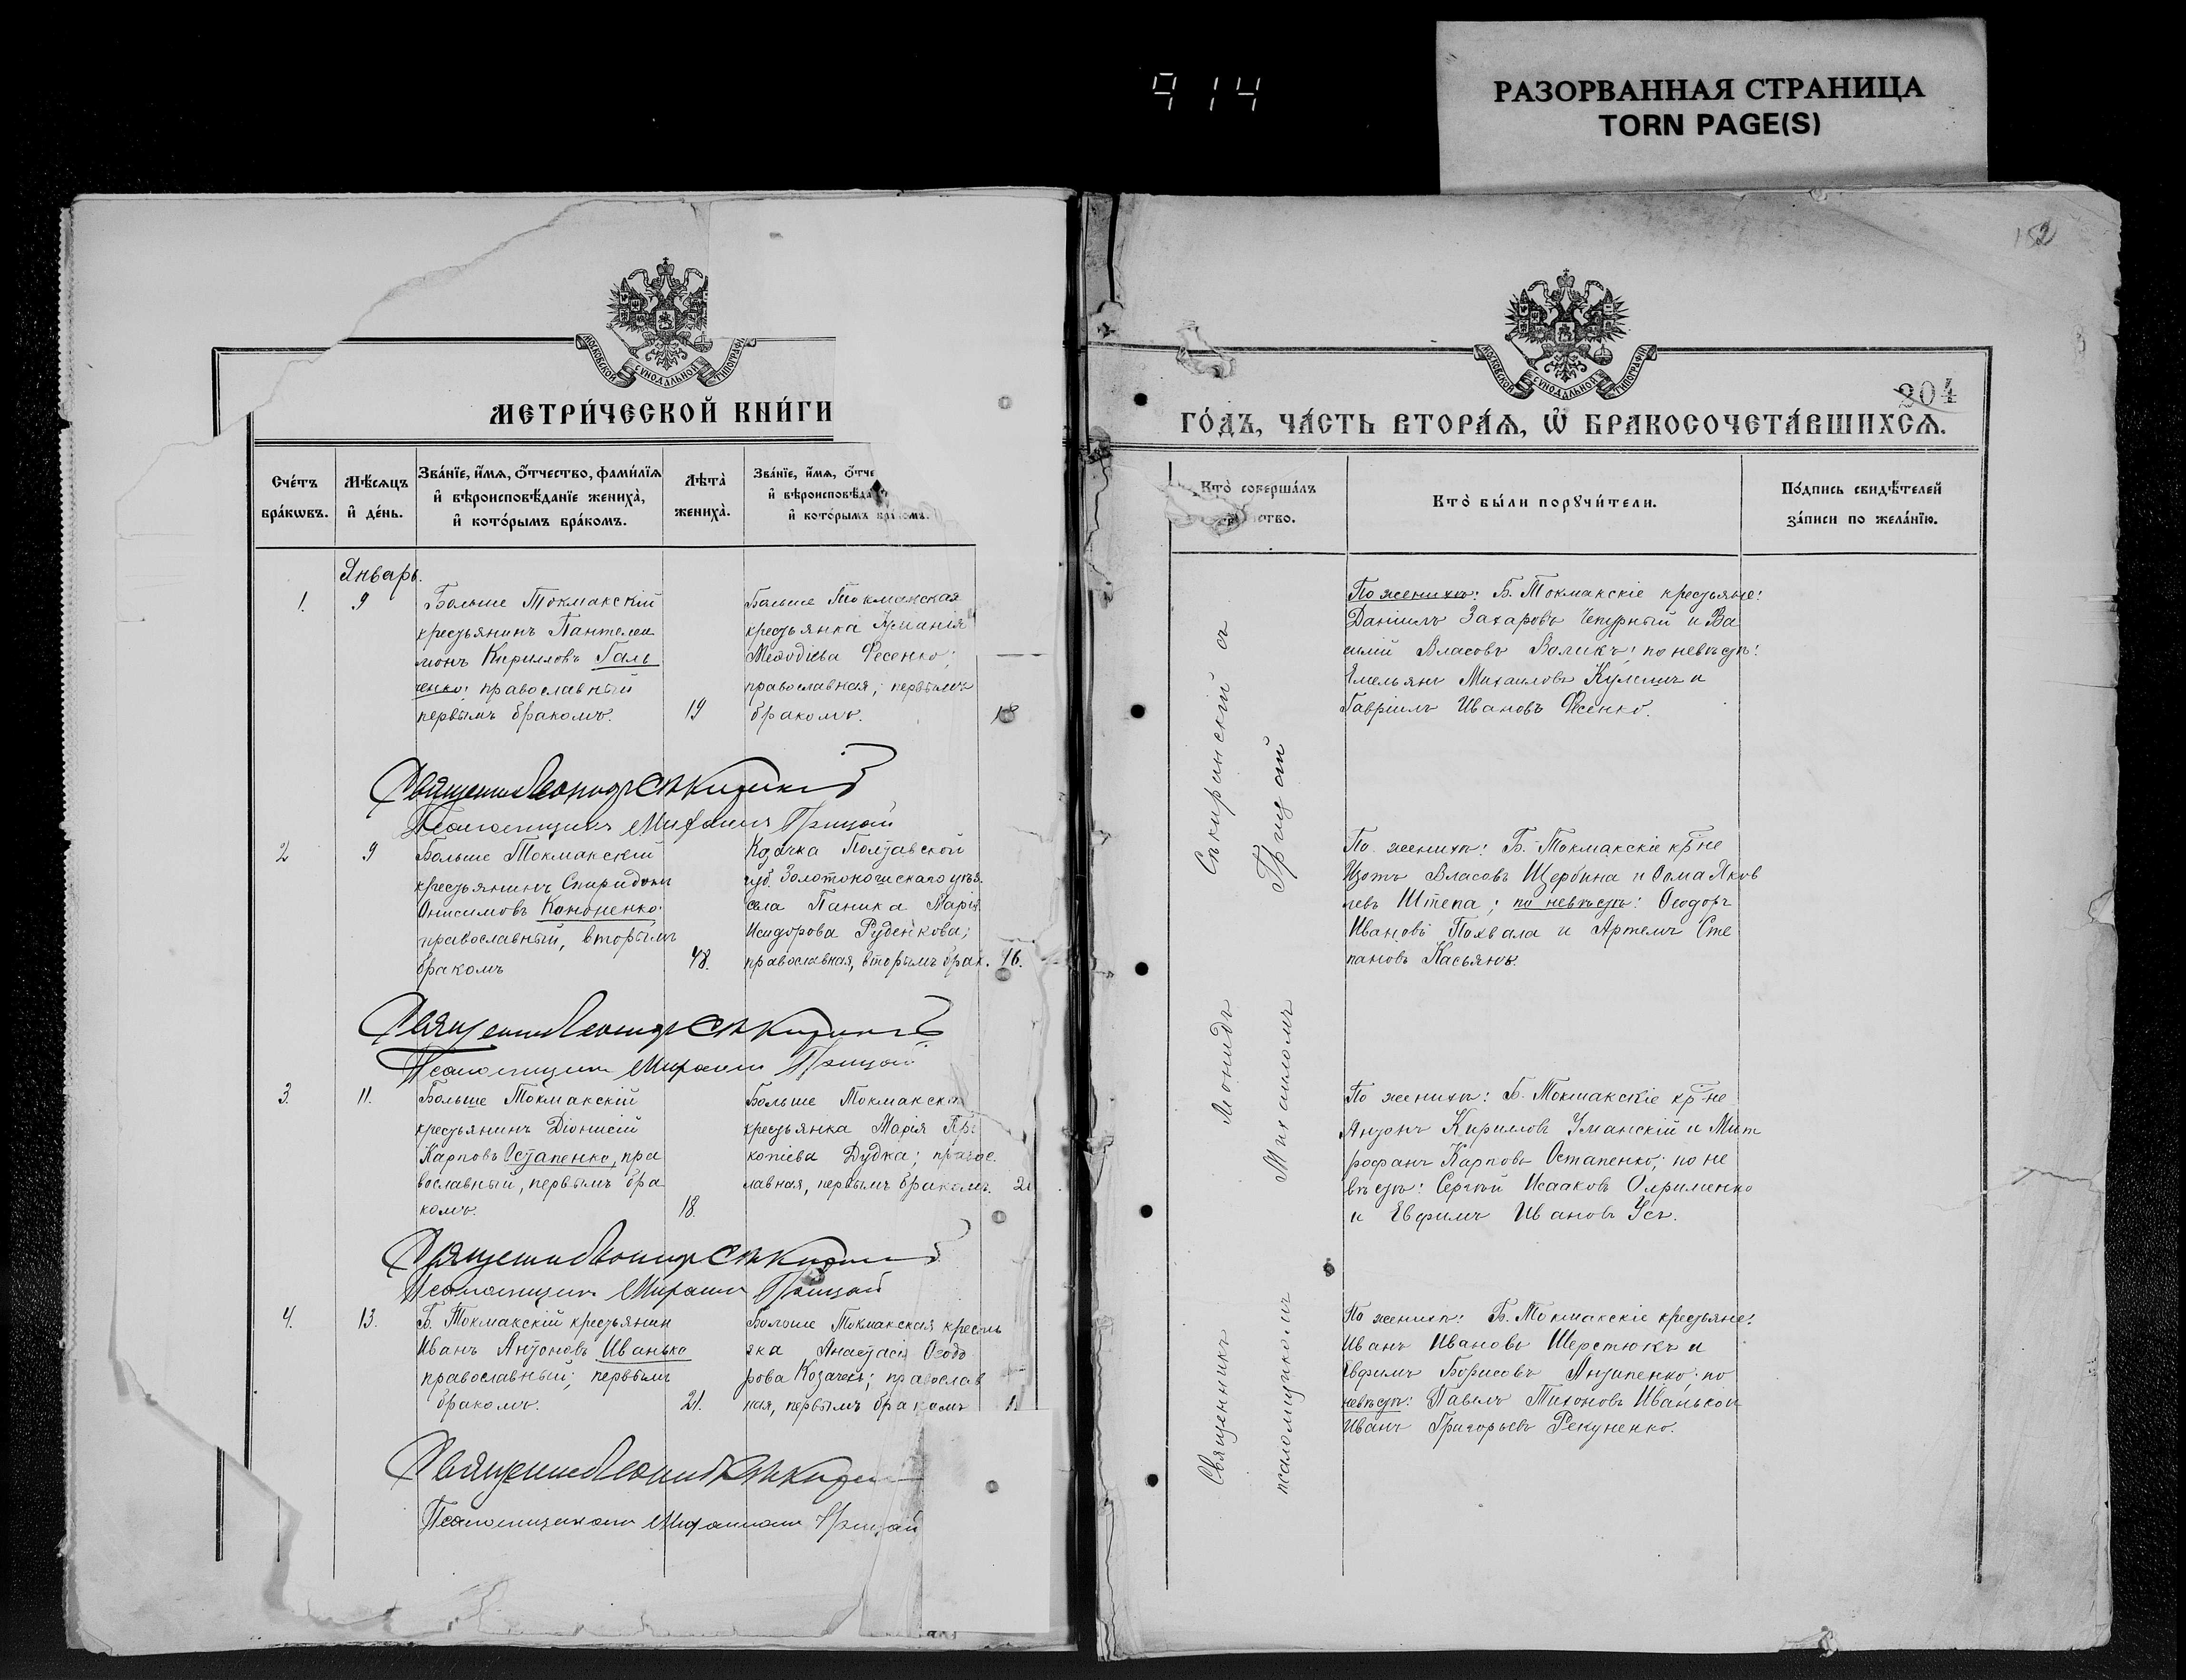 914
РАЗОРВАННАЯ СТРАНИЦА
TORN PAGE(S)
152
МОСКОВСКОЙ СѴНОДАЛЬНОЙ ТИПОГРАФІИ
МЕТРИ́ЧЕСКОЙ КНИ́ГИ
Сче́тъ бра́кѡвъ.
Мѣ́сѧцъ и҆ де́нь.
Зва́нїе, и҆́мѧ, ѻ҆́тчество, фами́лїѧ
и҆ вѣроисповѣ́данїе жениха̀,
и҆ кото́рымъ бра́комъ.
Лѣта̀ жениха̀.
Зва́нїе, и҆́мѧ, ѻ҆́тче
и҆ вѣроисповѣ́да
и҆ кото́рымъ бра́комъ.
Январь.
1. 9
Больше Токмакскій
крестьянинъ Пантелеи
монъ Кирилловъ Галь
ченко; православный
первымъ бракомъ.
19
Больше Токмакская
крестьянка
Меѳодіева Фесенко;
православная; первымъ
бракомъ.
18
Священникъ Леонидъ Сѣкиринскій
Псаломщикъ Михаилъ Грицай
2 9
Больше Токмакскій
крестьянинъ Спиридонъ
Онисимовъ Кононенко
православный, вторымъ
бракомъ
48.
Козачка Полтавской
губ. Золотоношскаго уѣз.
села Паника Марія
Исидорова Руденкова;
православная, вторымъ брак. 46.
Священникъ Леонидъ Сѣкиринскій
Псаломщикъ Михаилъ Грицай
3. 11.
Больше Токмакскій
крестьянинъ Діонисій
Карповъ Остапенко, пра
вославный, первымъ бра
комъ.
18.
Больше Токмакска
крестьянка Марія Пр
копіева Дудка; правос
лавная, первымъ бракомъ. 21
Священникъ Леонидъ Сѣкиринскій
Псаломщикъ Михаилъ Грицай
4. 13.
Б. Токмакскій крестьянин
Иванъ Антоновъ Иванько
православный; первымъ
бракомъ.
21.
Больше Токмакская кресть
янка Анастасія Ѳеодо
рова Козачекъ; православ
ная, первымъ бракомъ
Священникъ Леонидъ Сѣкиринскій
Псаломщикъ Михаилъ Грицай
МОСКОВСКОЙ СѴНОДАЛЬНОЙ ТИПОГРАФІИ
204
ГО́ДЪ, ЧА́СТЬ ВТОРА́Ѧ, Ѡ҆ БРАКОСОЧЕТА́ВШИХСѦ.
Кто̀ соверша́лъ
ство.
Кто̀ бы́ли порꙋчи́тели.
По́дпись свидѣ́телей
за́писи по жела́нїю.
Священникъ Леонидъ Сѣкиринскій съ
псаломщикомъ Михаиломъ Грицай
По женихѣ: Б. Токмакскіе крестьяне:
Даніилъ Захаровъ Чепурный и Ва
силій Власовъ Воликъ; по невѣстѣ:
Емельянъ Михаиловъ Кулешъ и
Гавріилъ Ивановъ Фесенко.
По женихѣ: Б. Токмакскіе кр-не
Изотъ Власовъ Щербина и Ѳома Яков
левъ Штепа; по невѣстѣ: Ѳеодоръ
Ивановъ Похвала и Артемъ Сте
пановъ Касьянъ.
По женихѣ: Б. Токмакскіе кр-не
Антонъ Кирилловъ Уманскій и Мит
рофанъ Карповъ Остапенко; по не
вѣстѣ: Сергѣй Исааковъ Охрименко
и Евфимъ Ивановъ Усъ.
По женихѣ: Б. Токмакскіе крестьяне:
Иванъ Ивановъ Шерстюкъ и
Евфимъ Борисовъ Антипенко; по
невѣстѣ: Павелъ Тихоновъ Иванько и
Иванъ Григорьевъ Рекуненко.